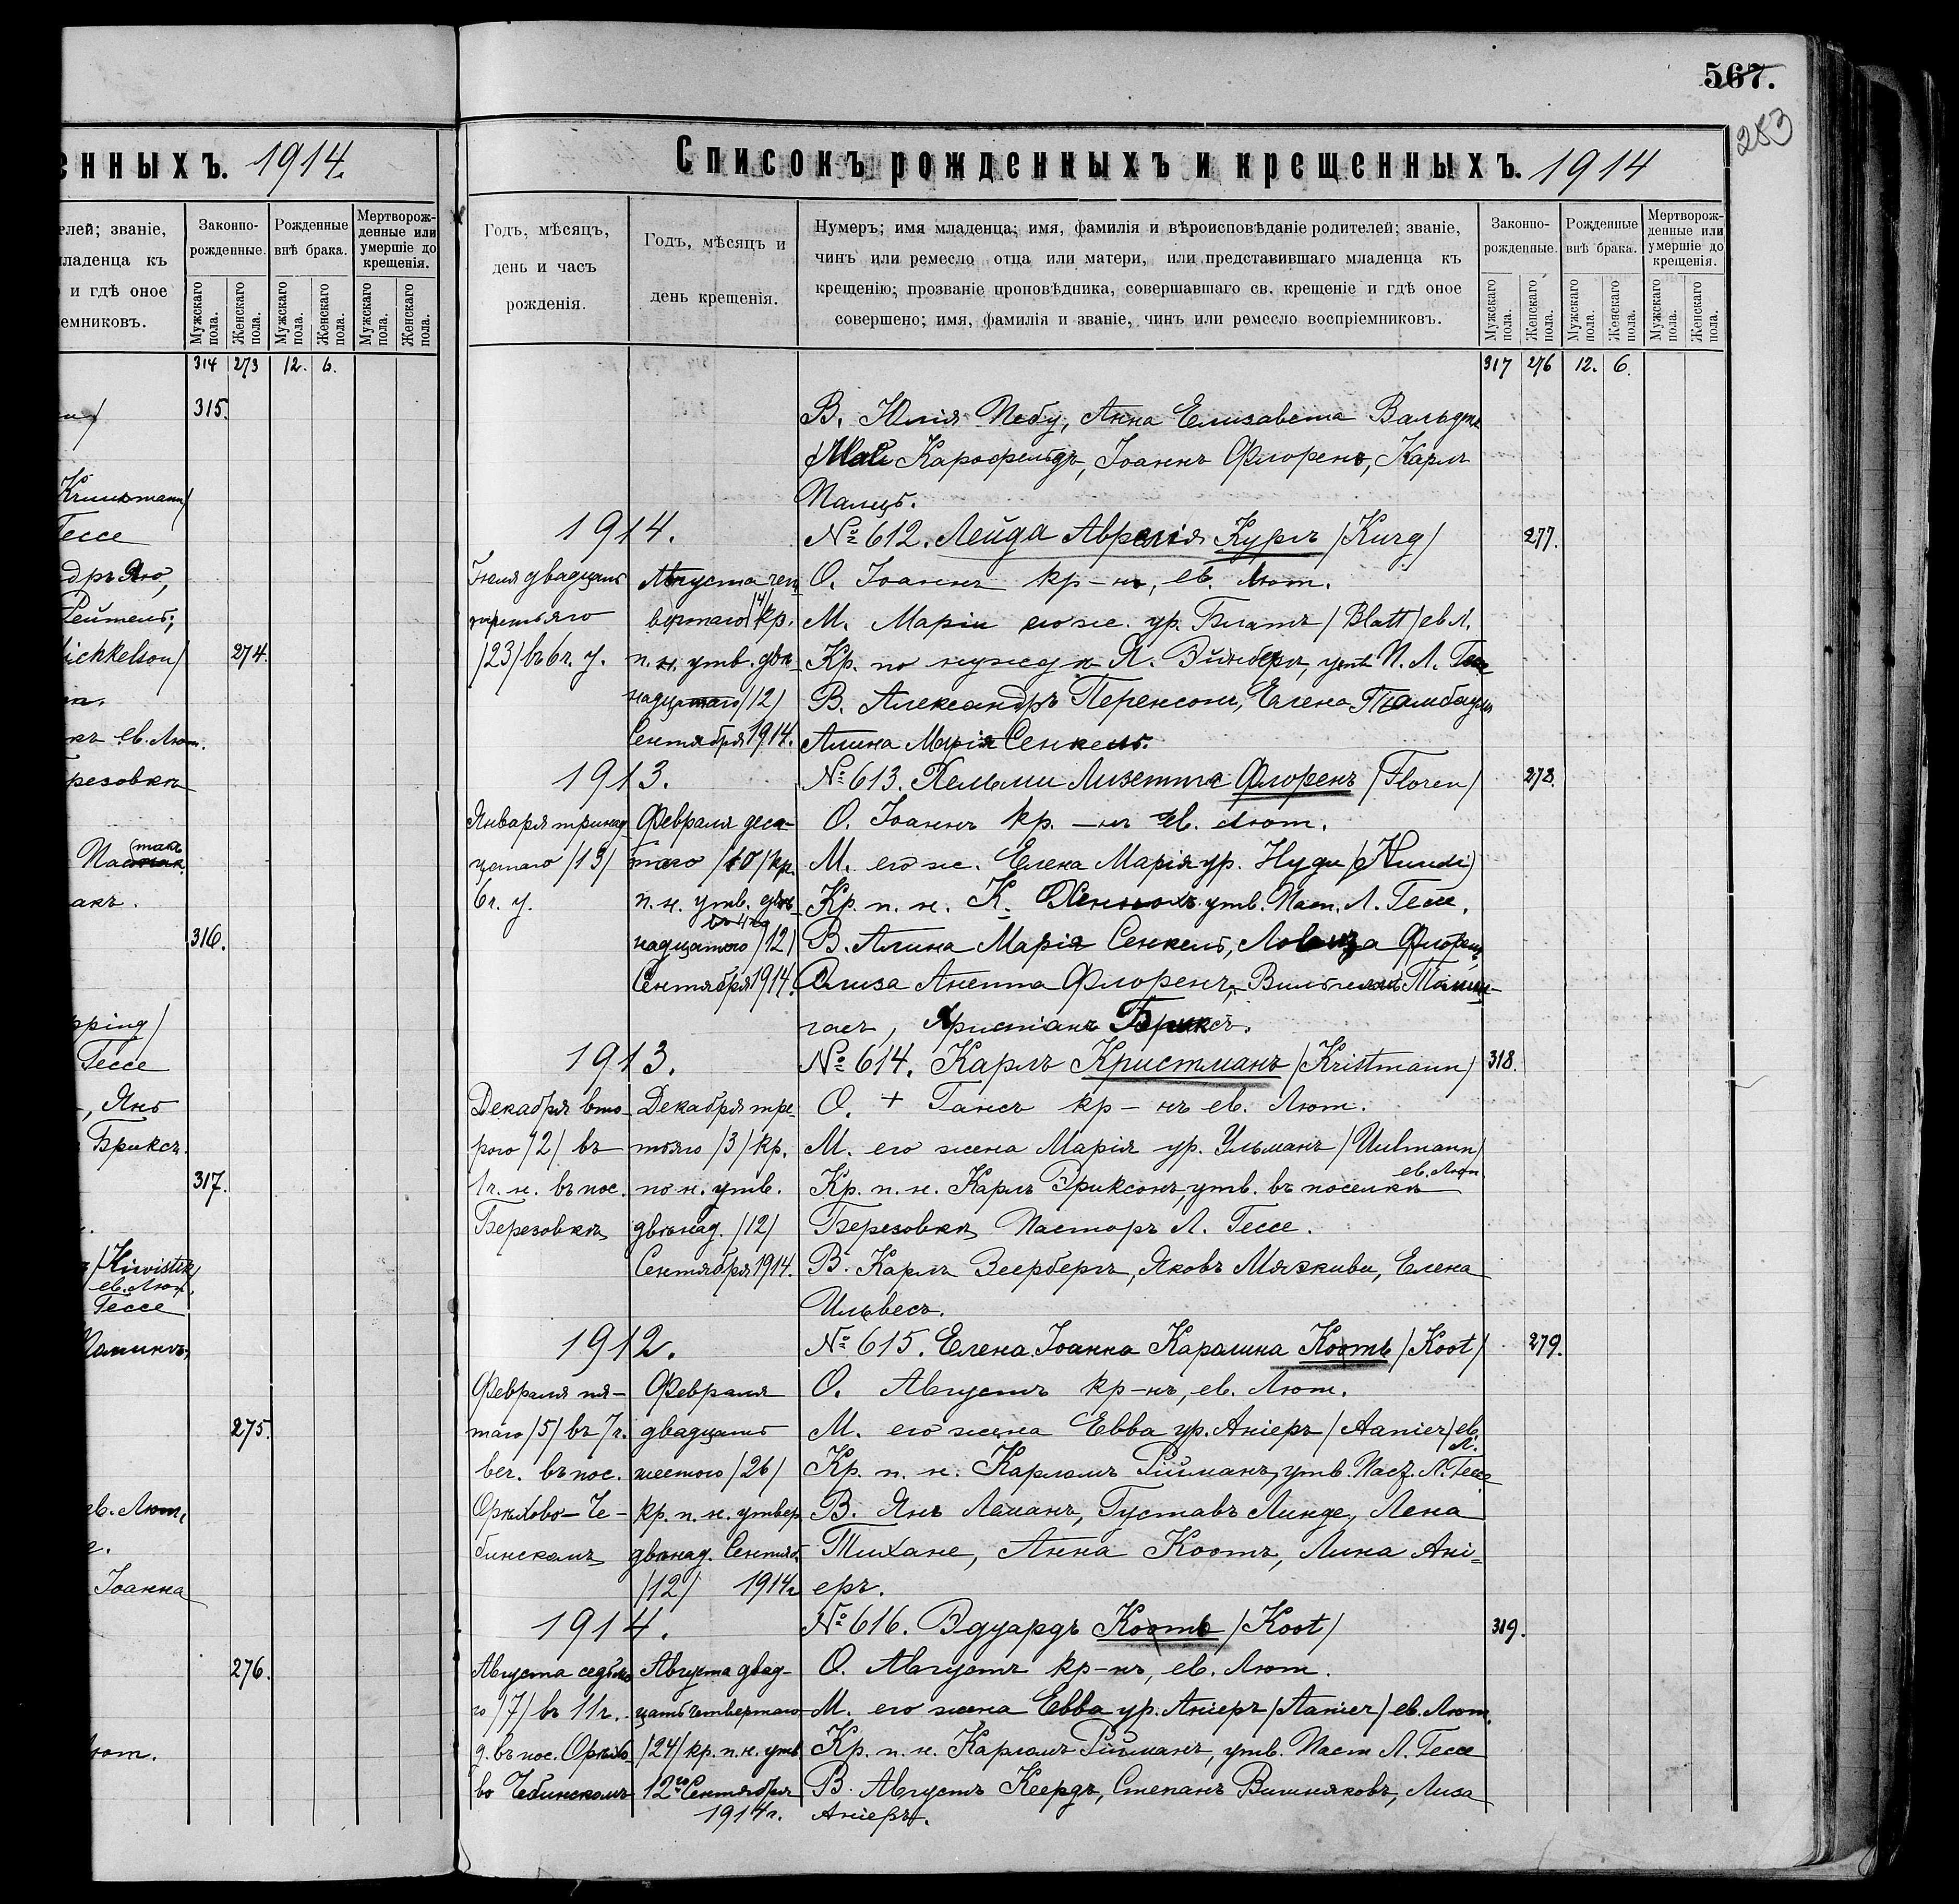 567.
283
енныхъ. 1914.
елей; званіе,
младенца къ
и гдѣ оное
емниковъ.
Законно-
рожденные.
Рожденные
внѣ брака.
Мертворож-
денные или
умершіе до
крещенія.
Мужскаго пола.
Женскаго пола.
Мужскаго пола.
Женскаго пола.
Мужскаго пола.
Женскаго пола.
314 273 12. 6.
315.
Kruusmann/
Гессе
Рейтель;
ichkelson/ 274.
къ ев. Лют.
резовкѣ
такъ
акъ.
316.
pping/
Гессе
, Янъ
Бриксъ.
317.
/Kiwistik/
ев. Лют.
Гессе
275.
ев. Лют.
Іоанна
276.
лют.
Списокъ рожденныхъ и крещенныхъ. 1914
Годъ, мѣсяцъ,
день и часъ
рожденія.
Годъ, мѣсяцъ и
день крещенія.
Нумеръ; имя младенца; имя, фамилія и вѣроисповѣданіе родителей; званіе,
чинъ или ремесло отца или матери, или представившаго младенца къ
крещенію; прозваніе проповѣдника, совершавшаго св. крещеніе и гдѣ оное
совершено; имя, фамилія и званіе, чинъ или ремесло воспріемниковъ.
Законно-
рожденные.
Рожденные
внѣ брака.
Мертворож-
денные или
умершіе до
крещенія.
Мужскаго пола.
Женскаго пола.
Мужскаго пола.
Женскаго пола.
Мужскаго пола.
Женскаго пола.
317 276 12. 6.
В. Юлія Пебу, Анна Елизавета Вальдтъ
Мали Карофельдъ, Іоаннъ Флоренъ, Карлъ
Палць.
1914. №612. Лейда Аврелія Кургъ /Kurg/ 277.
Іюля двадцать Августа чет- О. Іоаннъ кр-нъ, ев. Лют.
третьяго вертаго /4/ кр. М. Марія его ж. ур. Блатъ /Blatt/ ев Л.
/23/ въ 6 ч. у. п. н. утв. двѣ- Кр. по нуждѣ Я. Эйнбергъ, утв. П. Л. Гессе
надцатаго /12/ В. Александръ Перенсонъ, Елена
Сентября 1914. Алина Марія Сенкель.
1913. №613. Хельми Лизетта Флоренъ /Floren/ 278.
Января тринад- Февраля деся- О. Іоаннъ кр.-нъ ев. лют.
цатаго /13/ таго /10/ кр. М. его ж. Елена Марія ур. Нуди /Nundi/
6 ч. у. п. н. утв. двѣ- Кр. п. н. К. утв. Паст. Л. Гессе.
надцатого /12/ В. Алина Марія Сенкель, Ловиза Флоренъ,
Сентября 1914. Елиза Анетта Флоренъ, Вильгельмъ
Христіанъ Бриксъ.
1913. №614. Карлъ Кристманъ /Kristmann/ 318.
Декабря вто- Декабря тре- О. + Гансъ кр-нъ ев. Лют.
рого /2/ въ тьяго /3/ кр. М. его жена Марія ур. Ульманъ /Uulmann/
ев. Лют.
1 ч. н. въ пос. по н. утв. Кр. п. н. Карлъ Эриксонъ, утв. въ поселкѣ
Березовкѣ двѣнад. /12/ Березовкѣ Пасторъ Л. Гессе.
Сентября 1914. В. Карлъ Зеербергъ, Яковъ Мяэкиви, Елена
Ильвесъ.
1912. №615. Елена Іоанна Каралина Коотъ /Koot/ 279.
Февраля пя- Февраля О. Августъ кр-нъ, ев. Лют.
таго /5/ въ 7 ч. двадцать М. его жена Евва ур. Аніеръ /Aanier/ ев. Л.
веч. въ пос. шестого /26/ Кр. п. н. Карломъ Тійманъ, утв. Паст. Л. Гессе
Орѣхово-Че- кр. п. н. утвер. В. Янъ Леманъ, Густавъ Линде, Лена
бинскомъ двѣнад. Сентяб. Тихане, Анна Коотъ, Лина Ані-
/12/ 1914 г еръ.
1914. №616. Эдуардъ Коотъ /Koot/ 319.
Августа седьмо- Августа двад- О. Августъ кр-нъ, ев. Лют.
го /7/ въ 11 ч. цать четвертаго М. его жена Евва ур. Аніеръ /Aanier/ ев. Лют.
д. въ пос. Орѣхо- /24/ кр. п. н. утв Кр. п. н. Карломъ Тійманъ, утв. Паст Л. Гессе
во Чебинскомъ 12го Сентября В. Августъ Кеердъ, Степанъ Вишняковъ, Лиза
1914 г. Аніеръ.